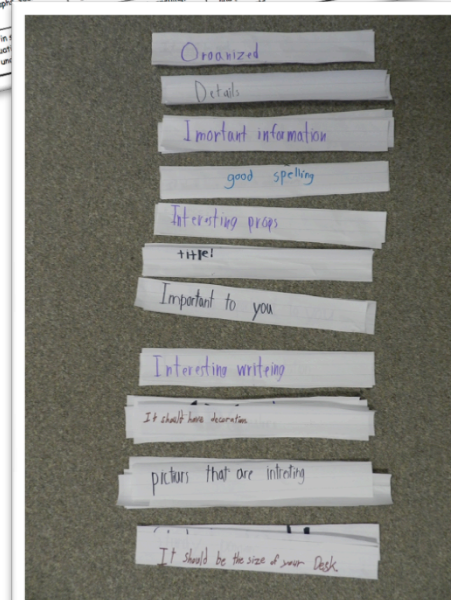 Organized
Details
Imortant information
good spelling
Interesting props
title!
Important to you
Interesting writeing
It should have decoration
picturs that are intresting
It should be the size of your Desk